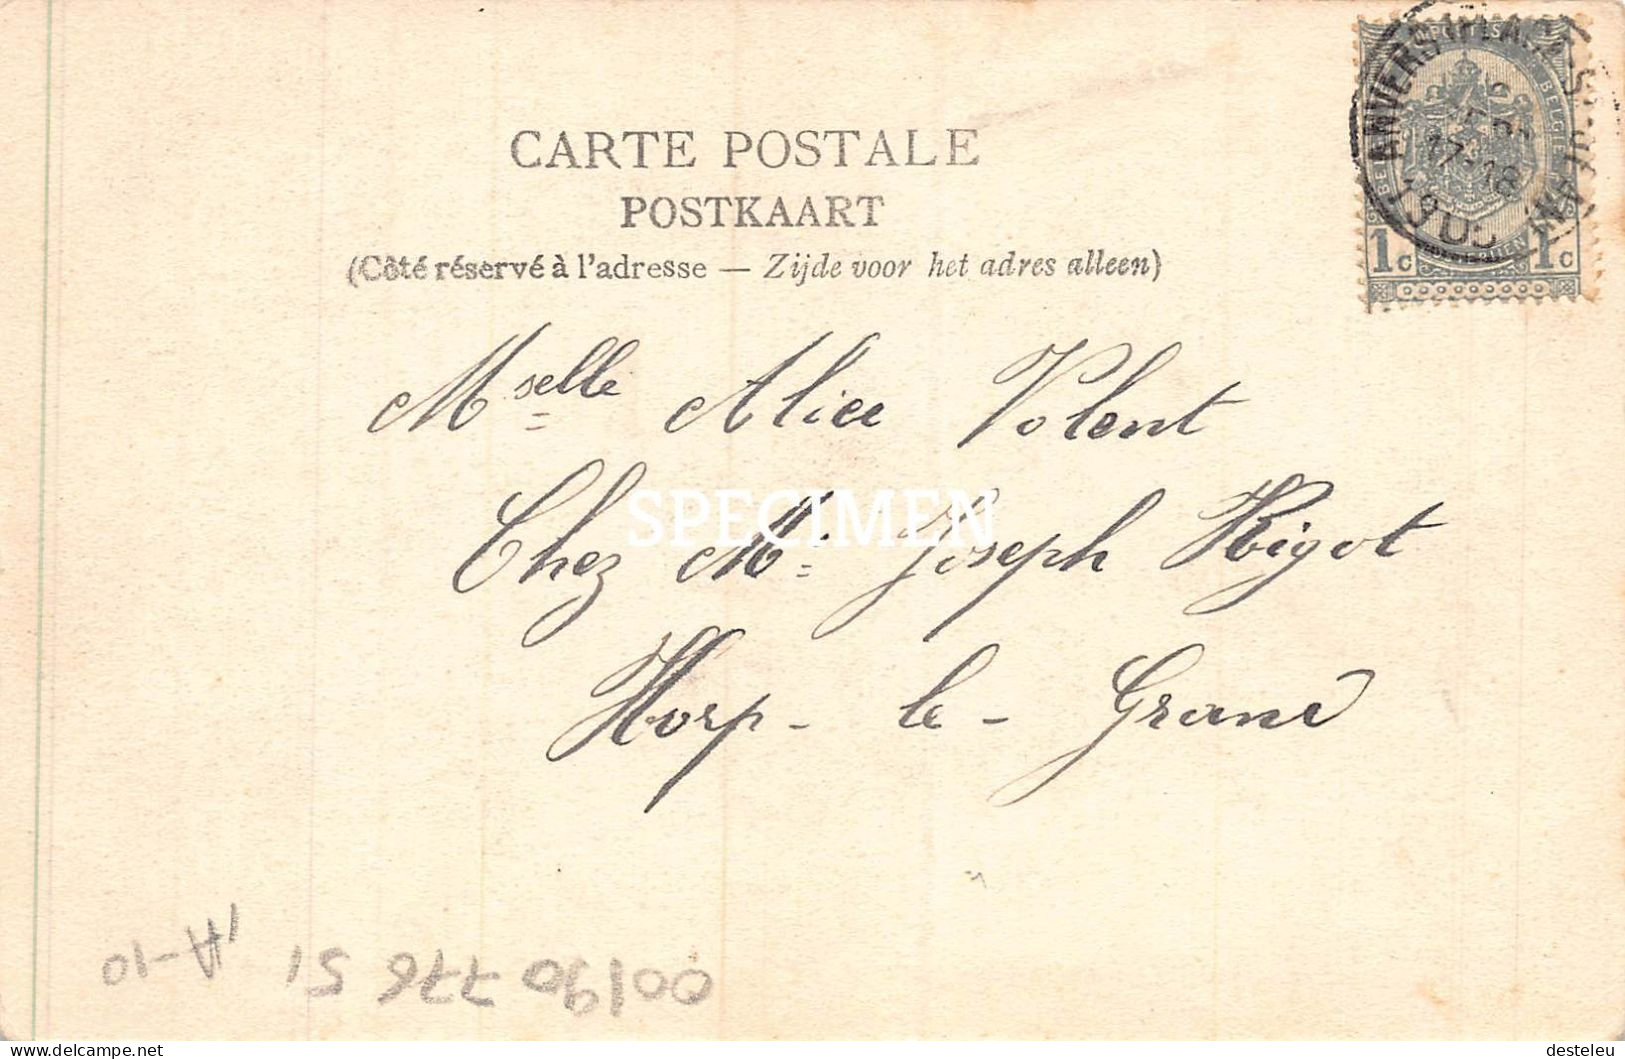 CARTE POSTALE
POSTKAART
(Côté réservé à l'adresse — Zijde voor het adres alleen)
1c 1c
ANVERS
17-18
Mselle Alice Volent
Chez Mr Joseph Higot
SPECIMEN
Horp-le-Grand
00190 776 51 A-10
delcampe.net
desteleu